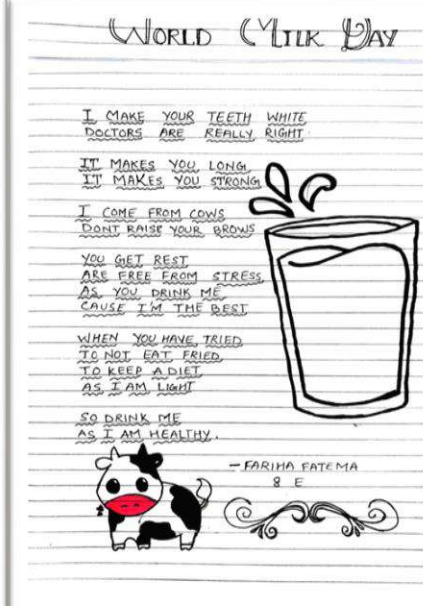 WORLD MILK DAY
I MAKE YOUR TEETH WHITE
DOCTORS ARE REALLY RIGHT
IT MAKES YOU LONG
IT MAKES YOU STRONG
I COME FROM COWS
DONT RAISE YOUR BROWS
YOU GET REST
ARE FREE FROM STRESS
AS YOU DRINK ME
CAUSE I'M THE BEST
WHEN YOU HAVE TRIED
TO NOT EAT FRIED
TO KEEP A DIET
AS I AM LIGHT
SO DRINK ME
AS I AM HEALTHY.
- FARIHA FATEMA
8 E